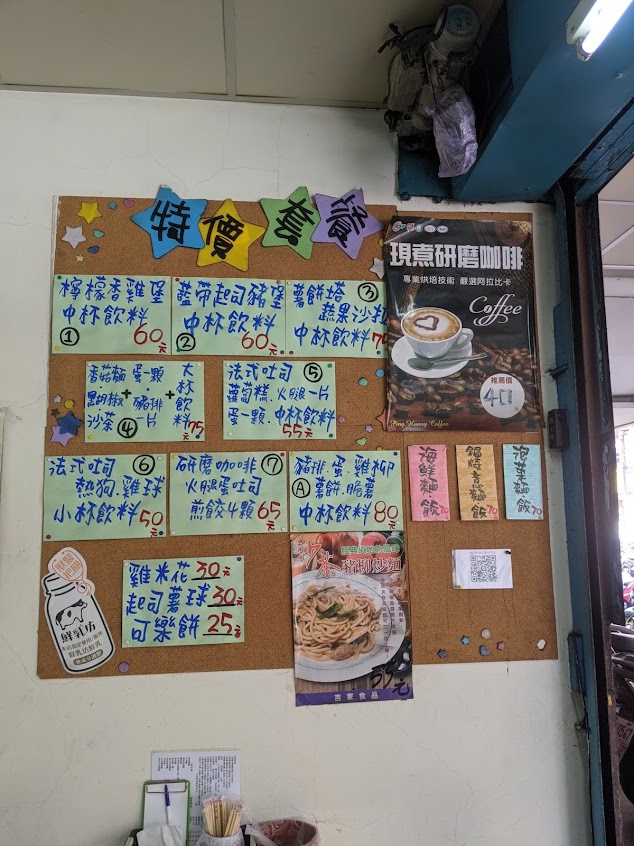 特價套餐
檸檬香雞堡
中杯飲料
① 60元
藍帶起司豬堡
中杯飲料
② 60元
薯餅塔 ③
蔬果沙拉
中杯飲料
香菇麵 蛋一顆 大杯飲料
黑胡椒 + 豬排 +
沙茶 ④ 一片 75元
法式吐司 ⑤
蘿蔔糕.火腿一片
蛋一顆.中杯飲料
55元
法式吐司 ⑥
熱狗.雞球
小杯飲料 50元
研磨咖啡 ⑦
火腿蛋吐司
煎餃4顆 65元
豬排.蛋.雞柳
Ⓐ 薯餅.脆薯
中杯飲料 80元
雞米花 30元
起司薯球 30元
可樂餅 25元
現煮研磨咖啡
專業烘培技術 嚴選阿拉比卡
Coffee
推薦價
40元
Ping Huang Coffee
海鮮麵飯 70
鍋燒意麵飯 70
泡菜麵飯 70
豬柳炒麵
55元
吉家食品
鮮乳坊